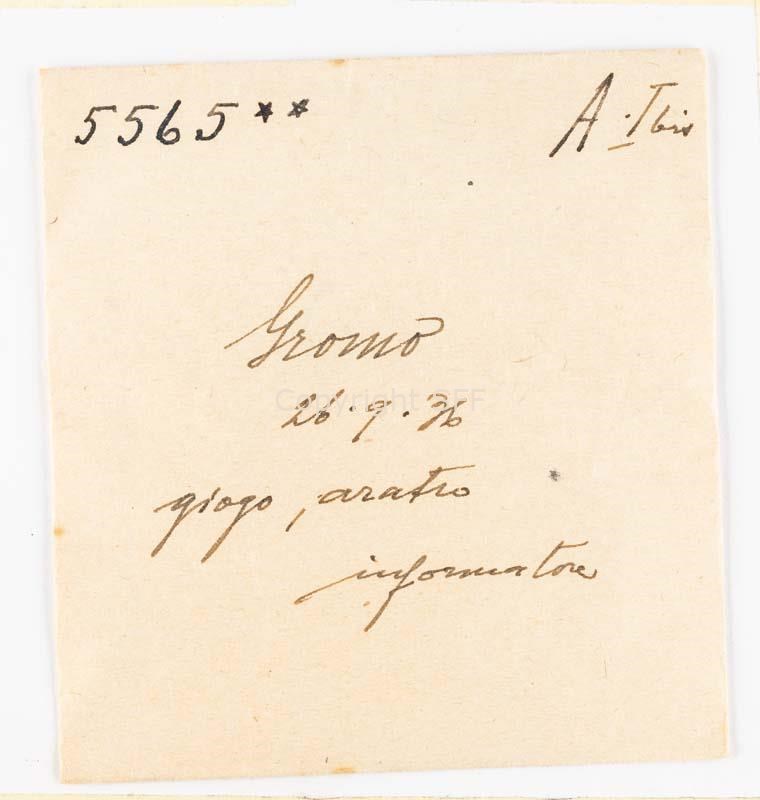 5565**
A. I bis
Gromo
Copyright SFF
26.9.36
giogo, aratro
informatore